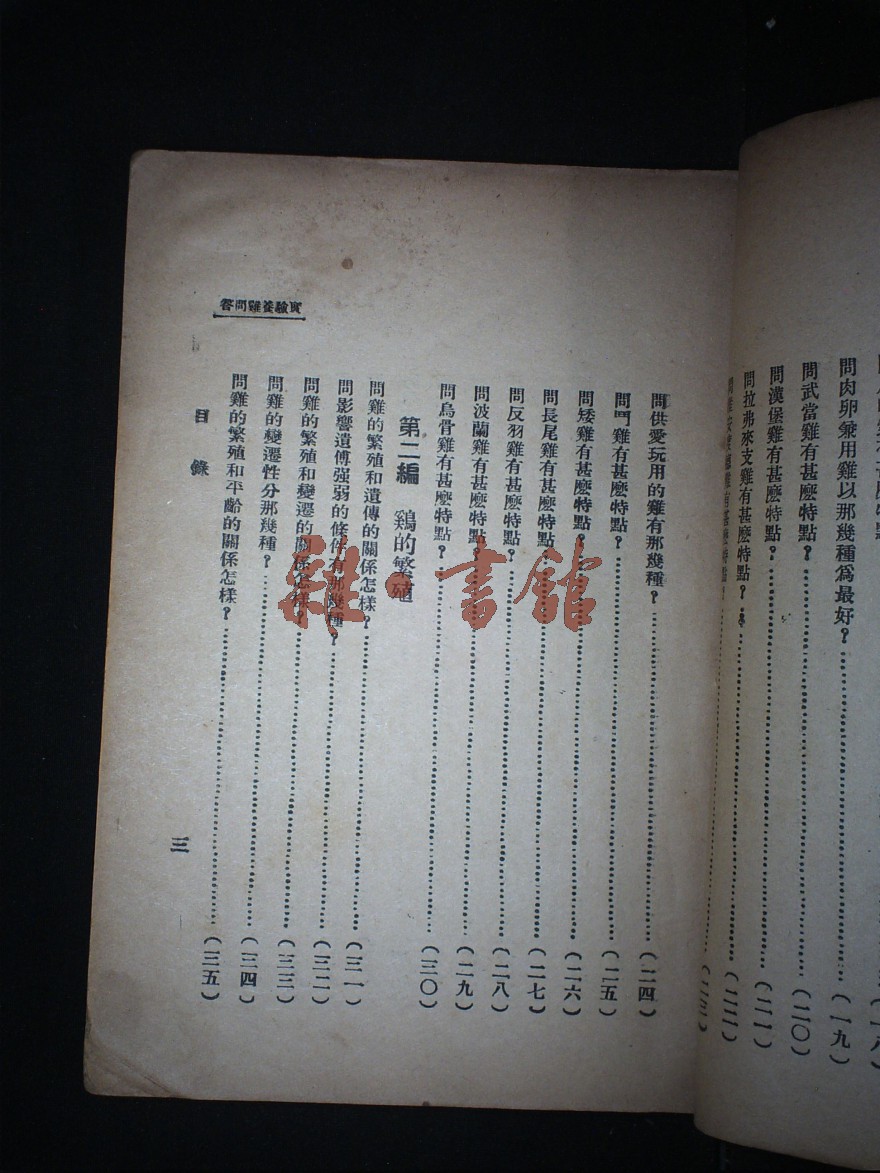 問肉卵兼用雞以那幾種爲最好?(一九)
問武當雞有甚麽特點?(二〇)
問漢堡雞有甚麽特點?(二一)
問拉弗來支雞有甚麽特點?(二二)
實驗養雞問答
問供愛玩用的雞有那幾種?(二四)
問鬥雞有甚麽特點?(二五)
問矮雞有甚麽特點?(二六)
問長尾雞有甚麽特點?(二七)
問反羽雞有甚麽特點?(二八)
問波蘭雞有甚麽特點?(二九)
問烏骨雞有甚麽特點?(三〇)
第二編 鷄的繁殖
問雞的繁殖和遺傳的關係怎樣?(三一)
問影響遺傳强弱的條件有那幾種?(三二)
問雞的繁殖和變遷的關係怎樣?(三三)
問雞的變遷性分那幾種?(三四)
問雞的繁殖和年齡的關係怎樣?(三五)
目錄
三
書館